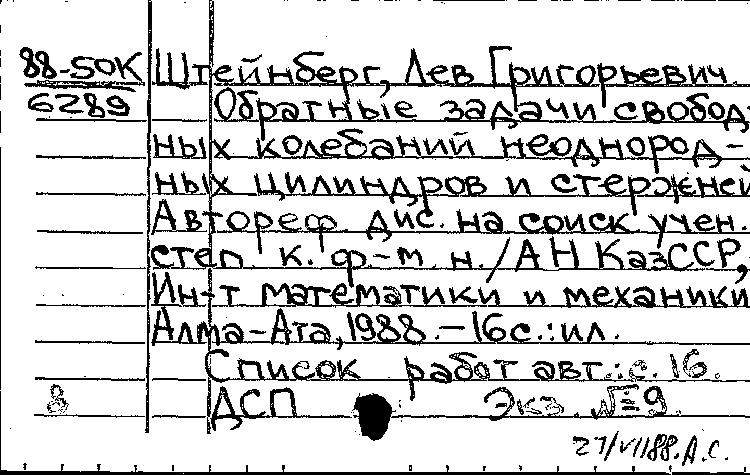 88-50К Штейнберг, Лев Григорьевич
6289 Обратные задачи свобод
ных колебаний неоднород-
ных цилиндров и стержней
Автореф. дис. на соиск учен.
степ к. ф-м н./АН КазССР,
Ин-т математики и механики
Алма-Ата, 1988.-16с.:ил.
Список работ авт.:с. 16.
8 ДСП Экз. №9.
27/VII88. А.С.